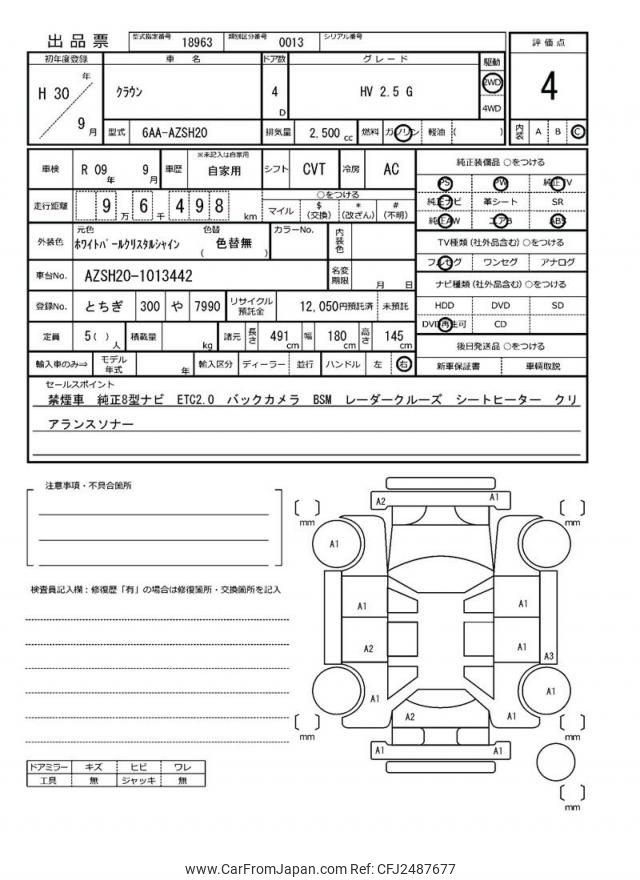 出品票 型式指定番号 18963 類別区分番号 0013 シリアル番号
初年度登録 車名 ドア数 グレード 駆動 評価点
H 30 年 9 月 クラウン 4 D HV 2.5 G 2WD 4WD 4
型式 6AA-AZSH20 排気量 2,500 cc 燃料 ガソリン 軽油 ( ) 内装 A B C
車検 R 09 年 9 月 車歴 ※未記入は自家用 自家用 シフト CVT 冷房 AC 純正装備品 ○をつける
PS PW 純正TV
走行距離 9 万 6 千 4 9 8 km ○をつける 純正ナビ 革シート SR
マイル $ (交換) * (改ざん) # (不明) 純正AW エアB ABS
外装色 元色 ホワイトパールクリスタルシャイン 色替 ( 色替無 ) カラーNo. 内装色 TV種類 (社外品含む) ○をつける
フルセグ ワンセグ アナログ
車台No. AZSH20-1013442 名変期限 月 日 ナビ種類 (社外品含む) ○をつける
登録No. とちぎ 300 や 7990 リサイクル預託金 12,050円預託済 未預託 HDD DVD SD
DVD再生可 CD
定員 5( ) 人 積載量 kg 諸元 長さ 491 cm 幅 180 cm 高さ 145 cm 後日発送品 ○をつける
輸入車のみ⇒ モデル年式 年 輸入区分 ディーラー 並行 ハンドル 左 右 新車保証書 車輌取説
セールスポイント
禁煙車 純正8型ナビ ETC2.0 バックカメラ BSM レーダークルーズ シートヒーター クリ
アランスソナー
注意事項・不具合箇所
検査員記入欄：修復歴「有」の場合は修復箇所・交換箇所を記入
A2 A1
mm mm
A1
A1 A1
A2 A1 A3
A1 A1 A1
A2
mm mm
A1 A1
mm
ドアミラー キズ ヒビ ワレ
工具 無 ジャッキ 無
www.CarFromJapan.com Ref: CFJ2487677